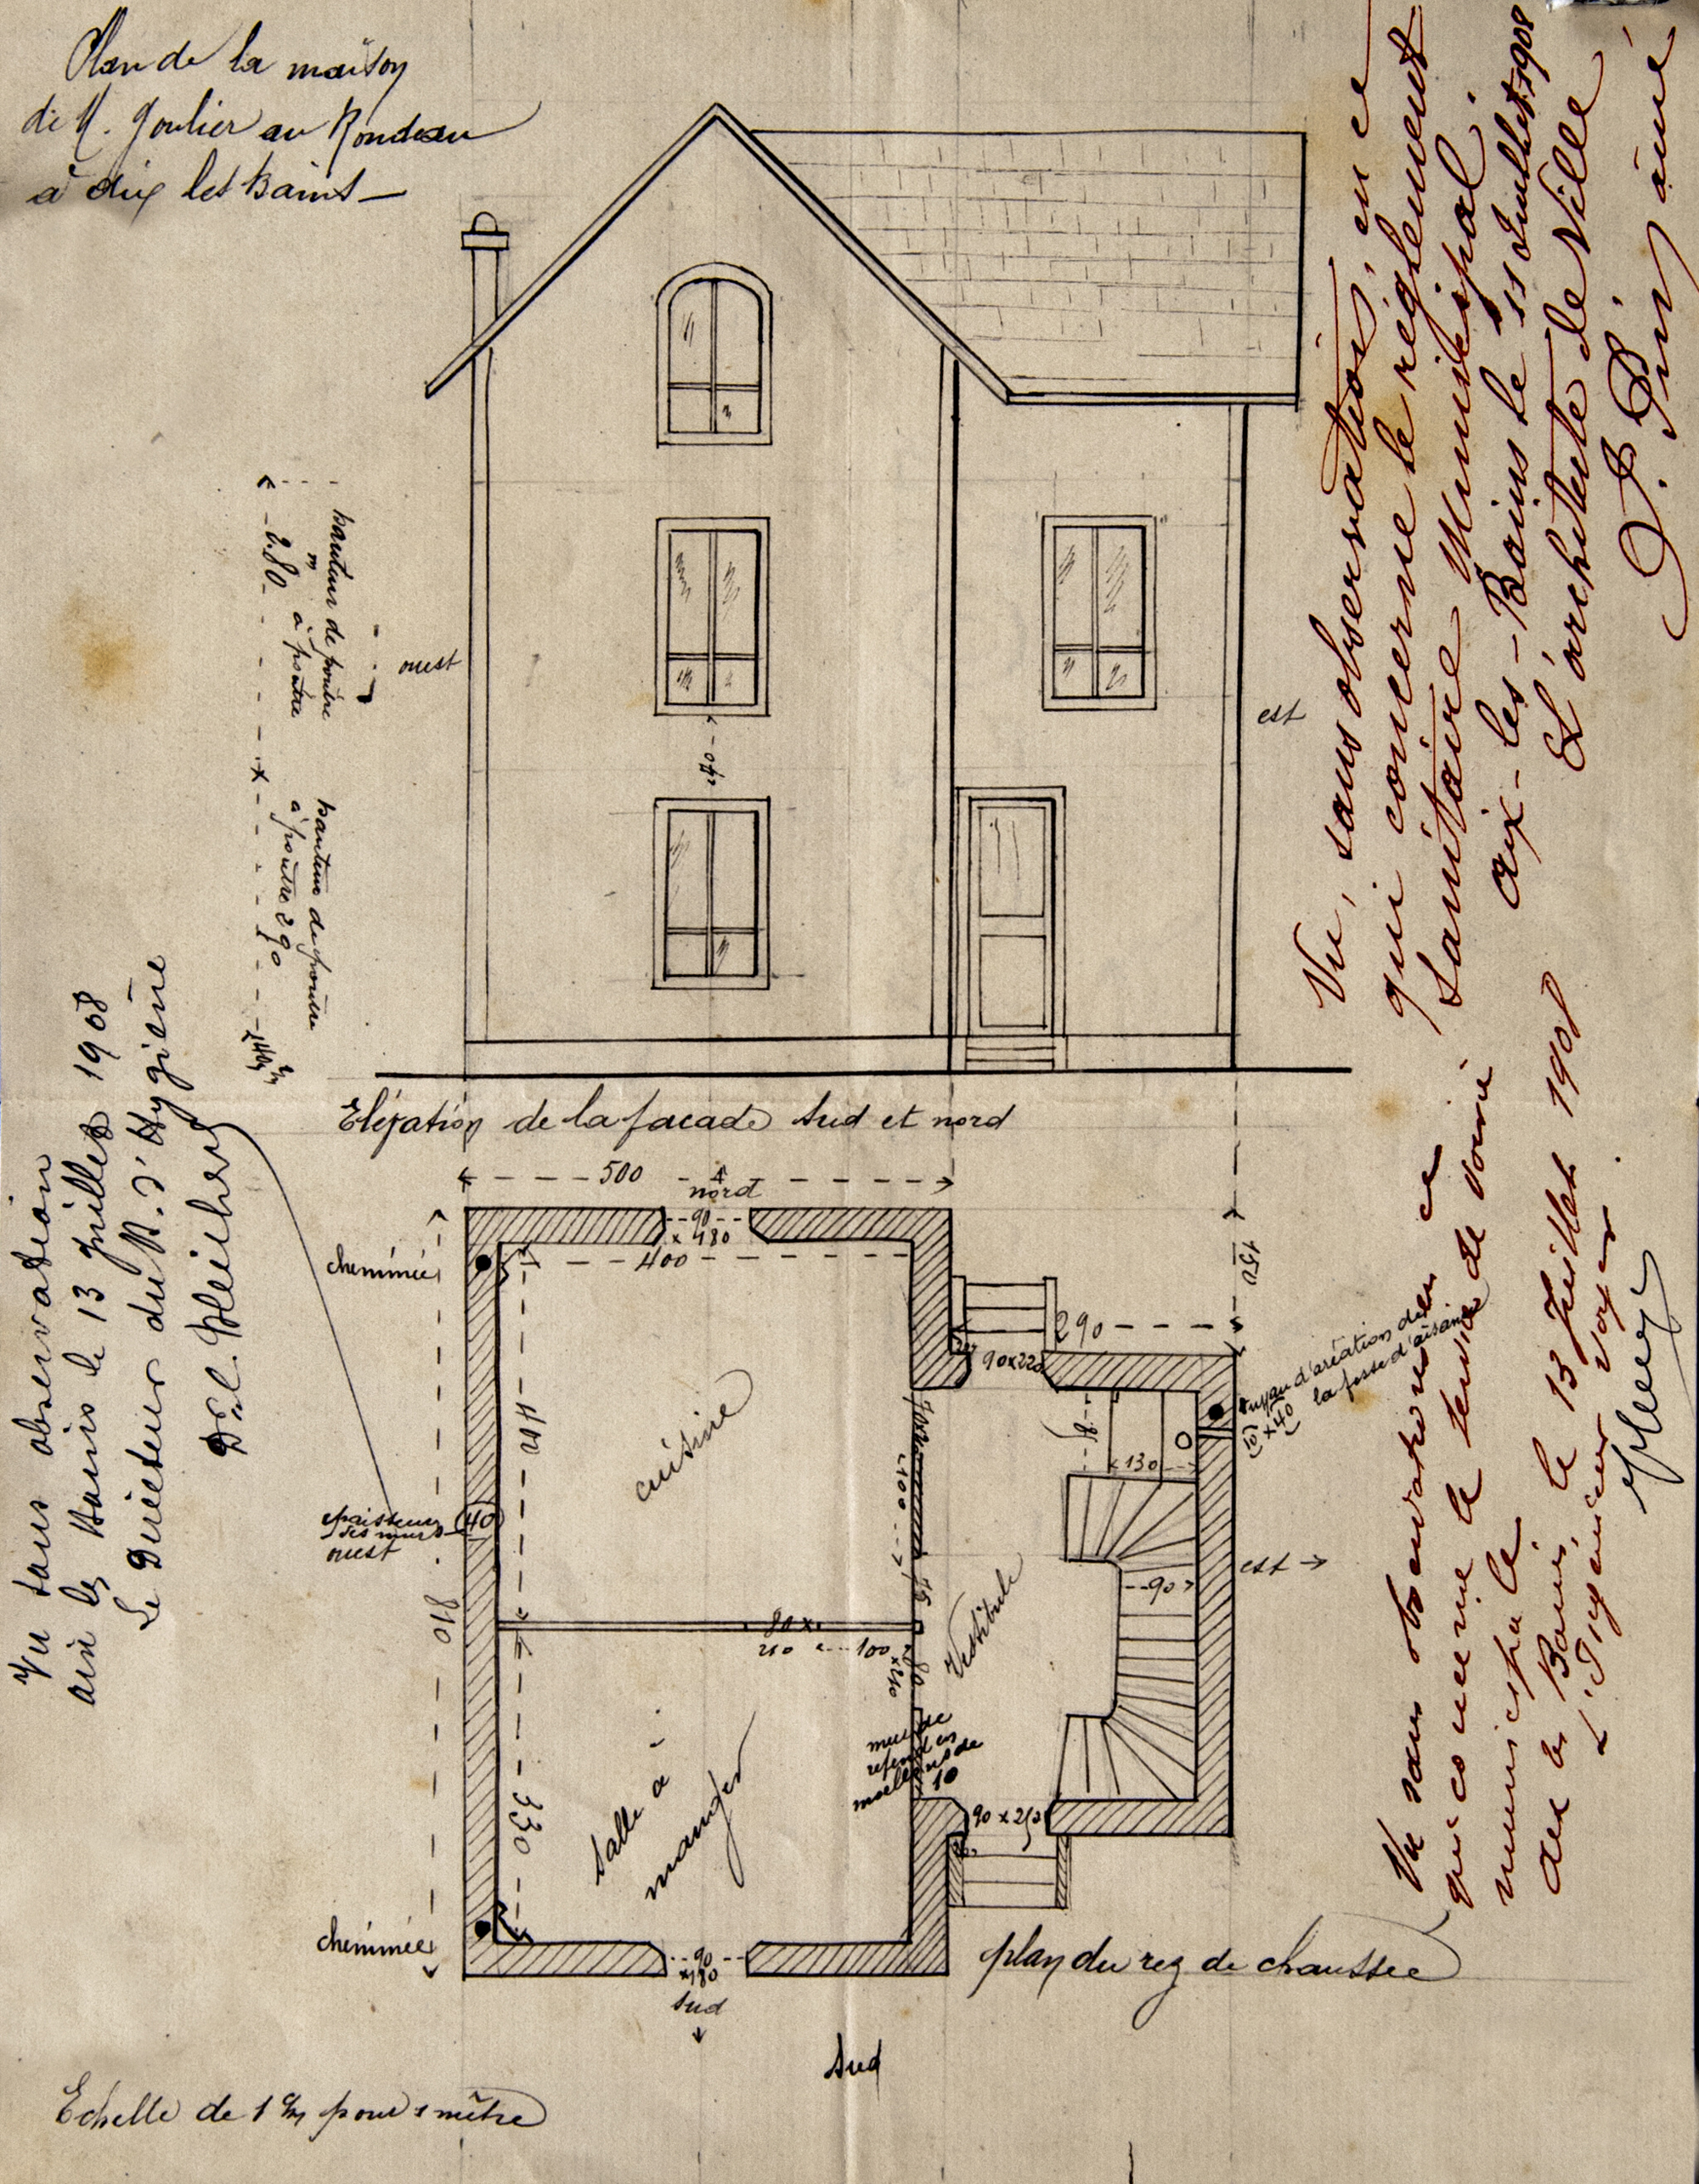 Plan de la maison
de M. Goulier au Rondeau
à Aix les Bains
ouest
hauteur de poutre
à poutre
2.80
hauteur de poutre
à poutre 2.90
est
Vu, sans observation, en ce
qui concerne le réglement
Sanitaire Municipal.
Aix-les-Bains le 11 Juillet 1908
L'architecte de Ville
J. Pin aîné
Elévation de la facade Sud et nord
Vu sans observation
Aix les Bains le 13 Juillet 1908
Le Directeur du B. d'Hygiène
Dr
500
nord
90
x 180
400
cheminée
150
290
90x220
tuyau d'aréation de
la fosse d'aisance
cuisine
410
100
130
epaisseur
des murs
ouest
40
810
est
90
80 x
210
100
Vestibule
mur de
refend en
moellons de
10
Salle à
manger
330
90 x 210
cheminée
90
x 180
sud
plan du rez de chaussée
Sud
Vu sans observations en ce
qui concerne le service de voirie
municipale
Aix les Bains, le 13 Juillet 1908
L'Ingénieur Voyer
Echelle de 1 c/m pour 1 mètre